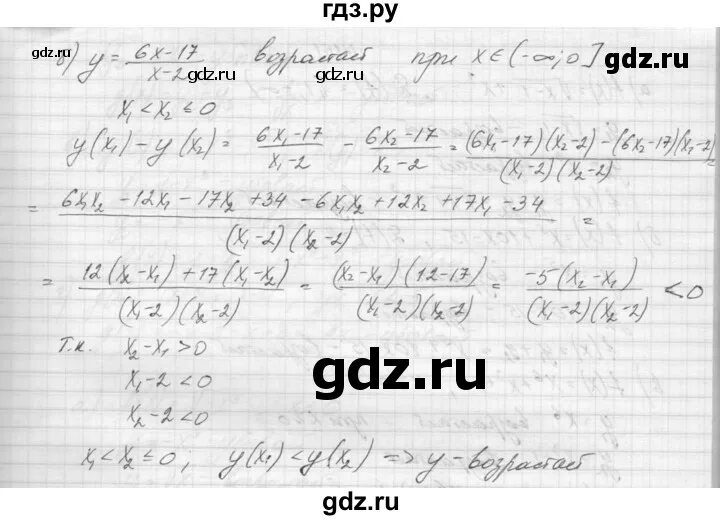 гдз.ру
б) y = (6x-17)/(x-2) возрастает при x ∈ (-∞; 0]
gdz.ru gdz.ru gdz.ru
x₁ < x₂ ≤ 0
y(x₁) - y(x₂) = (6x₁-17)/(x₁-2) - (6x₂-17)/(x₂-2) = ((6x₁-17)(x₂-2) - (6x₂-17)(x₁-2))/((x₁-2)(x₂-2)) =
= (6x₁x₂ - 12x₁ - 17x₂ + 34 - 6x₁x₂ + 12x₂ + 17x₁ - 34)/((x₁-2)(x₂-2)) =
= (12(x₂-x₁) + 17(x₁-x₂))/((x₁-2)(x₂-2)) = ((x₂-x₁)(12-17))/((x₁-2)(x₂-2)) = (-5(x₂-x₁))/((x₁-2)(x₂-2)) < 0
gdz.ru gdz.ru gdz.ru
т.к. x₂ - x₁ > 0
x₁ - 2 < 0
x₂ - 2 < 0
x₁ < x₂ ≤ 0; y(x₁) < y(x₂) => y - возрастает
gdz.ru gdz.ru gdz.ru
gdz.ru